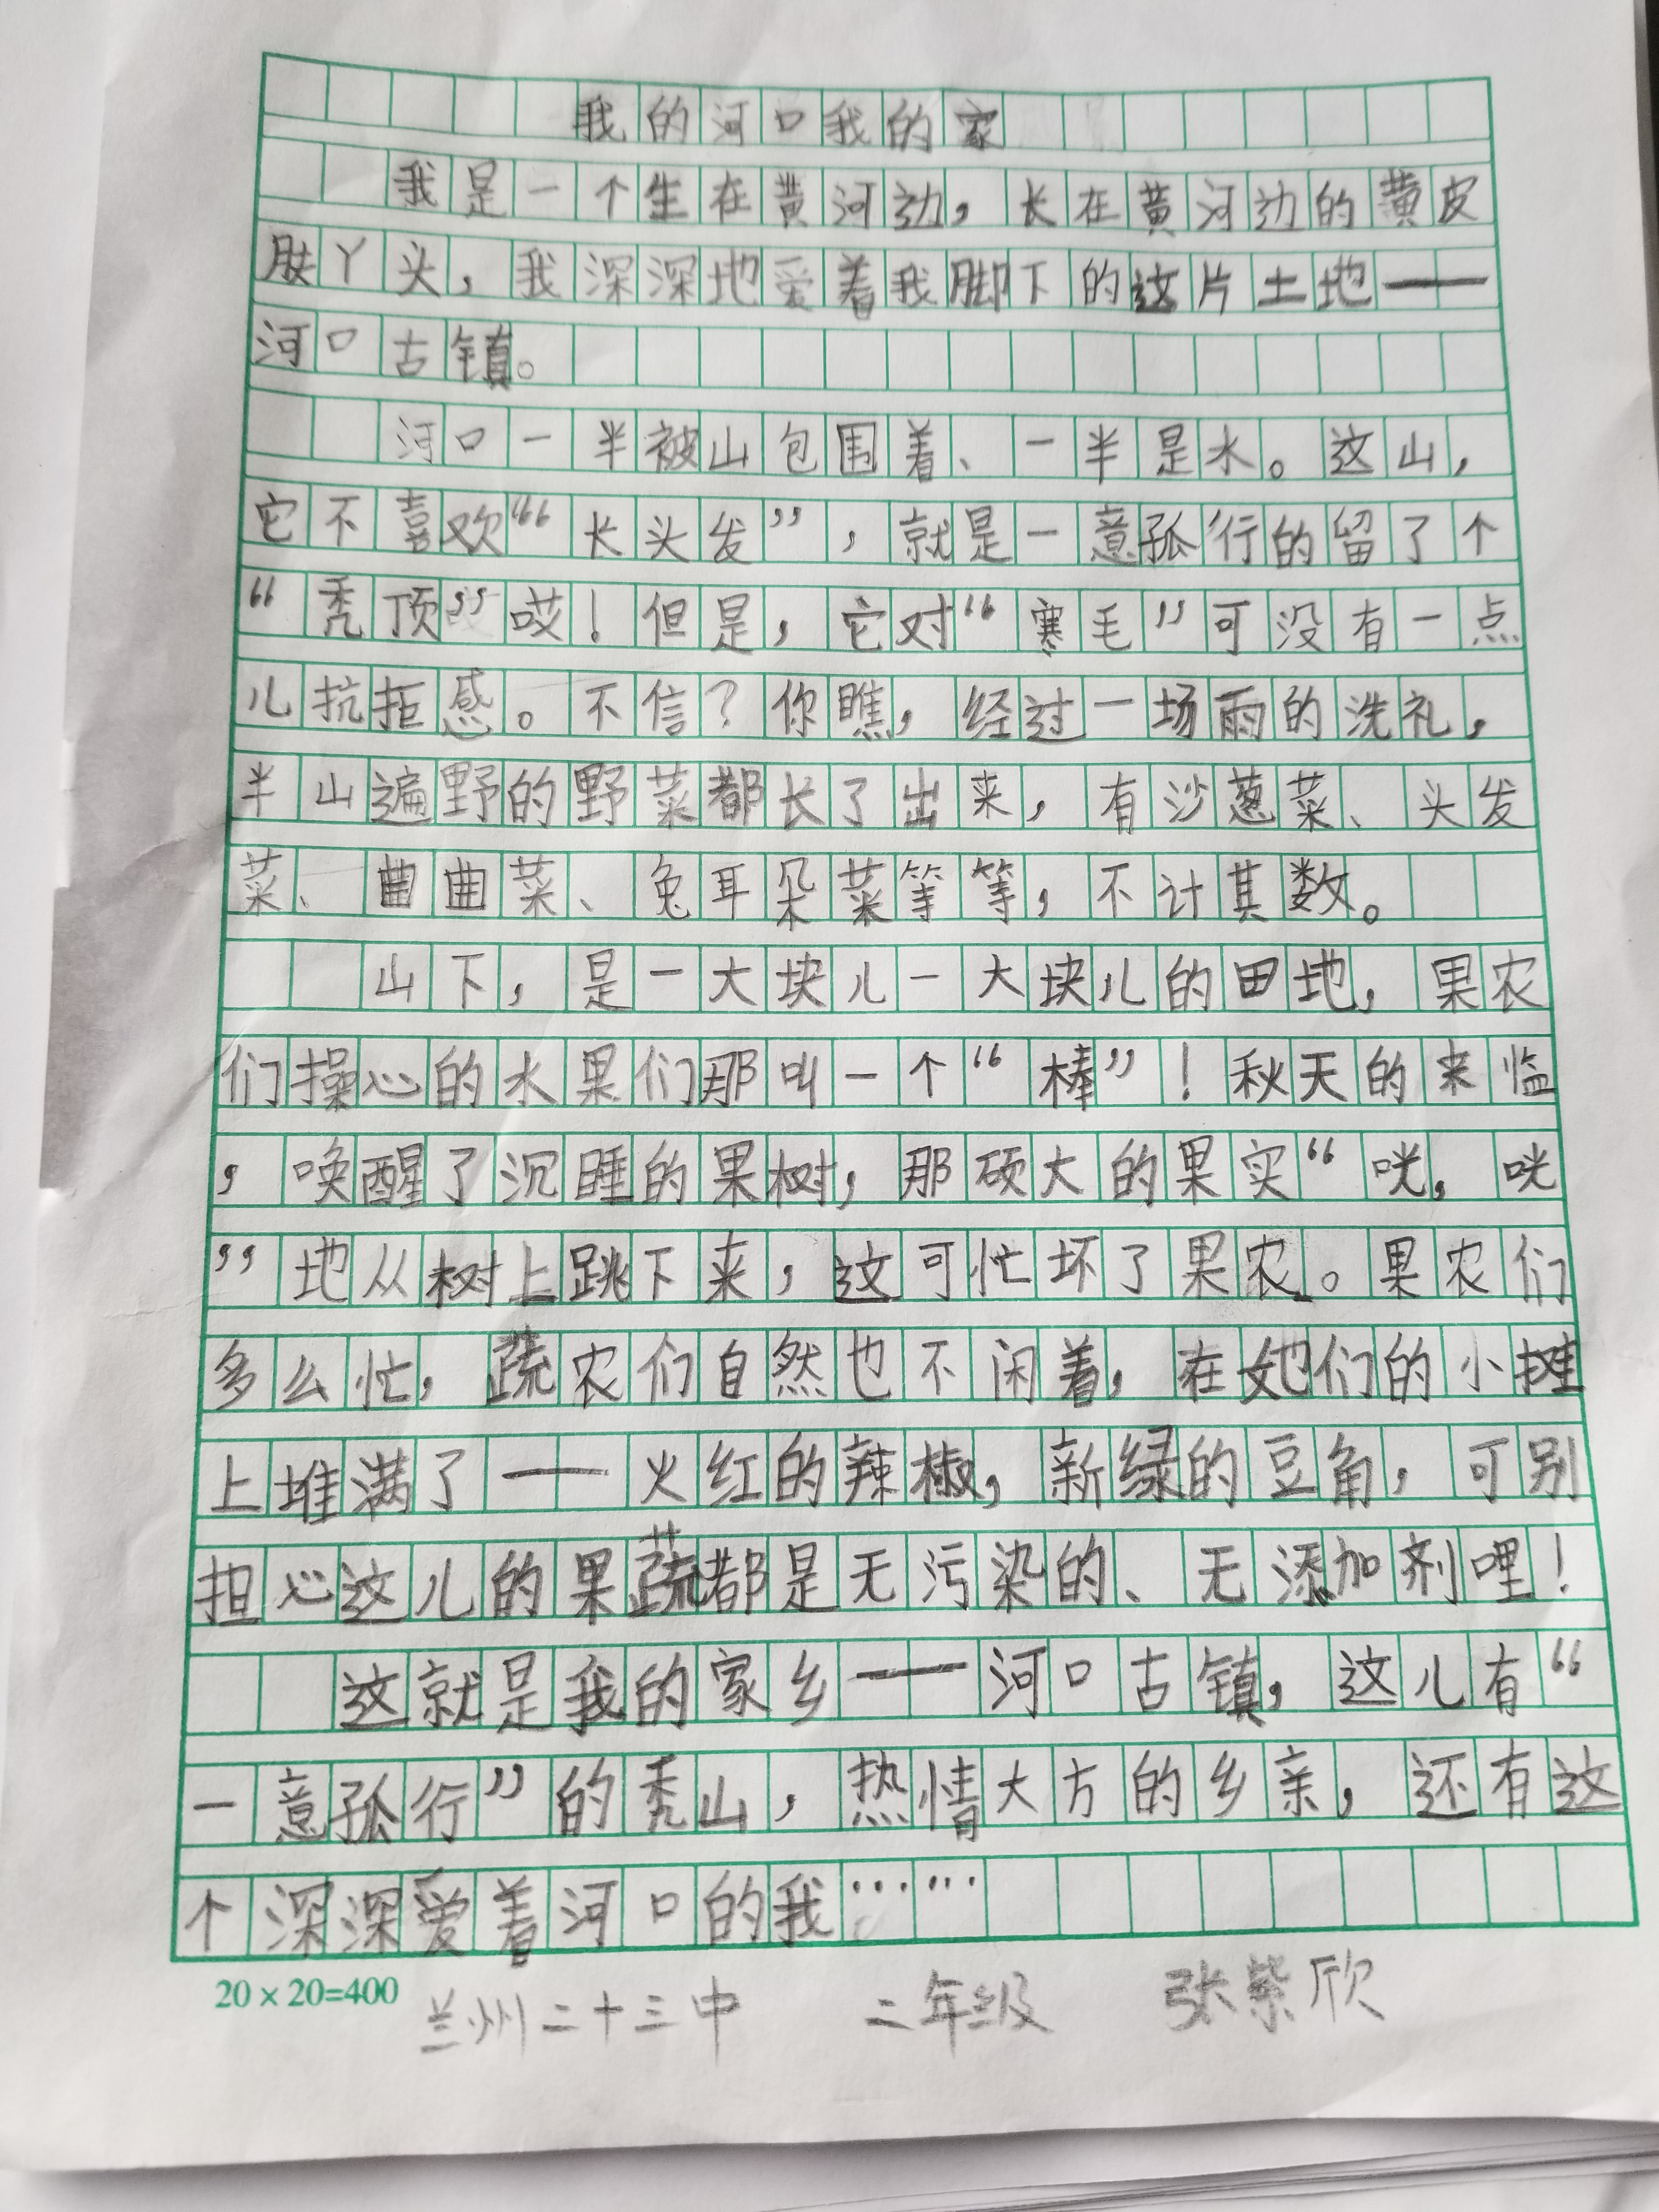 我的河口我的家
我是一个生在黄河边，长在黄河边的黄皮
肤丫头，我深深地爱着我脚下的这片土地——
河口古镇。
河口一半被山包围着、一半是水。这山，
它不喜欢“长头发”，就是一意孤行的留了个
“秃顶”哎！但是，它对“寒毛”可没有一点
儿抗拒感。不信？你瞧，经过一场雨的洗礼，
半山遍野的野菜都长了出来，有沙葱菜、头发
菜、曲曲菜、兔耳朵菜等等，不计其数。
山下，是一大块儿一大块儿的田地，果农
们操心的水果们那叫一个“棒”！秋天的来临
，唤醒了沉睡的果树，那硕大的果实“咣，咣
”地从树上跳下来，这可忙坏了果农。果农们
多么忙，蔬农们自然也不闲着，在她们的小摊
上堆满了——火红的辣椒，新绿的豆角，可别
担心这儿的果蔬都是无污染的、无添加剂哩！
这就是我的家乡——河口古镇，这儿有“
一意孤行”的秃山，热情大方的乡亲，还有这
个深深爱着河口的我……
20×20=400 兰州二十三中 二年级 张紫欣